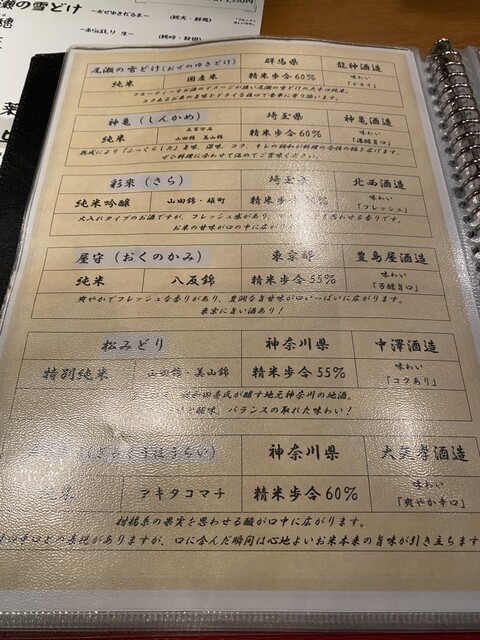 瀬の雪どけ
～かぜゆきだるま～
～あらばしり 生～
尾瀬の雪どけ（おぜのゆきどけ） 群馬県 龍神酒造
純米 国産米 精米歩合60% 味わい「ドライ」
神亀（しんかめ） 埼玉県 神亀酒造
純米 山田錦・美山錦 精米歩合60% 味わい「濃醇旨口」
熟成により「ふっくらした」旨味、深味、コク、キレの調和が料理の合性の幅を広げます。
ぜひ料理に合わせて温めてご賞味ください。
彩來（さら） 埼玉県 北西酒造
純米吟醸 山田錦・雄町 精米歩合 味わい「フレッシュ」
火入れタイプのお酒ですが、フレッシュ感があり、
お米の甘味が口の中に広がり
屋守（おくのかみ） 東京都 豊島屋酒造
純米 八反錦 精米歩合55% 味わい「芳醇旨口」
爽やかでフレッシュな香りがあり、豊潤な旨甘味が口いっぱいに広がります。
東京に旨い酒あり！
松みどり 神奈川県 中澤酒造
特別純米 山田錦・美山錦 精米歩合55% 味わい「コクあり」
が醸す地元神奈川の地酒。
酸味、バランスの取れた味わい！
神奈川県 大矢孝酒造
アキタコマチ 精米歩合60% 味わい「爽やか辛口」
柑橘系の果実を思わせる酸が口中に広がります。
がありますが、口に含んだ瞬間は心地よいお米本来の旨味が引き立ちます